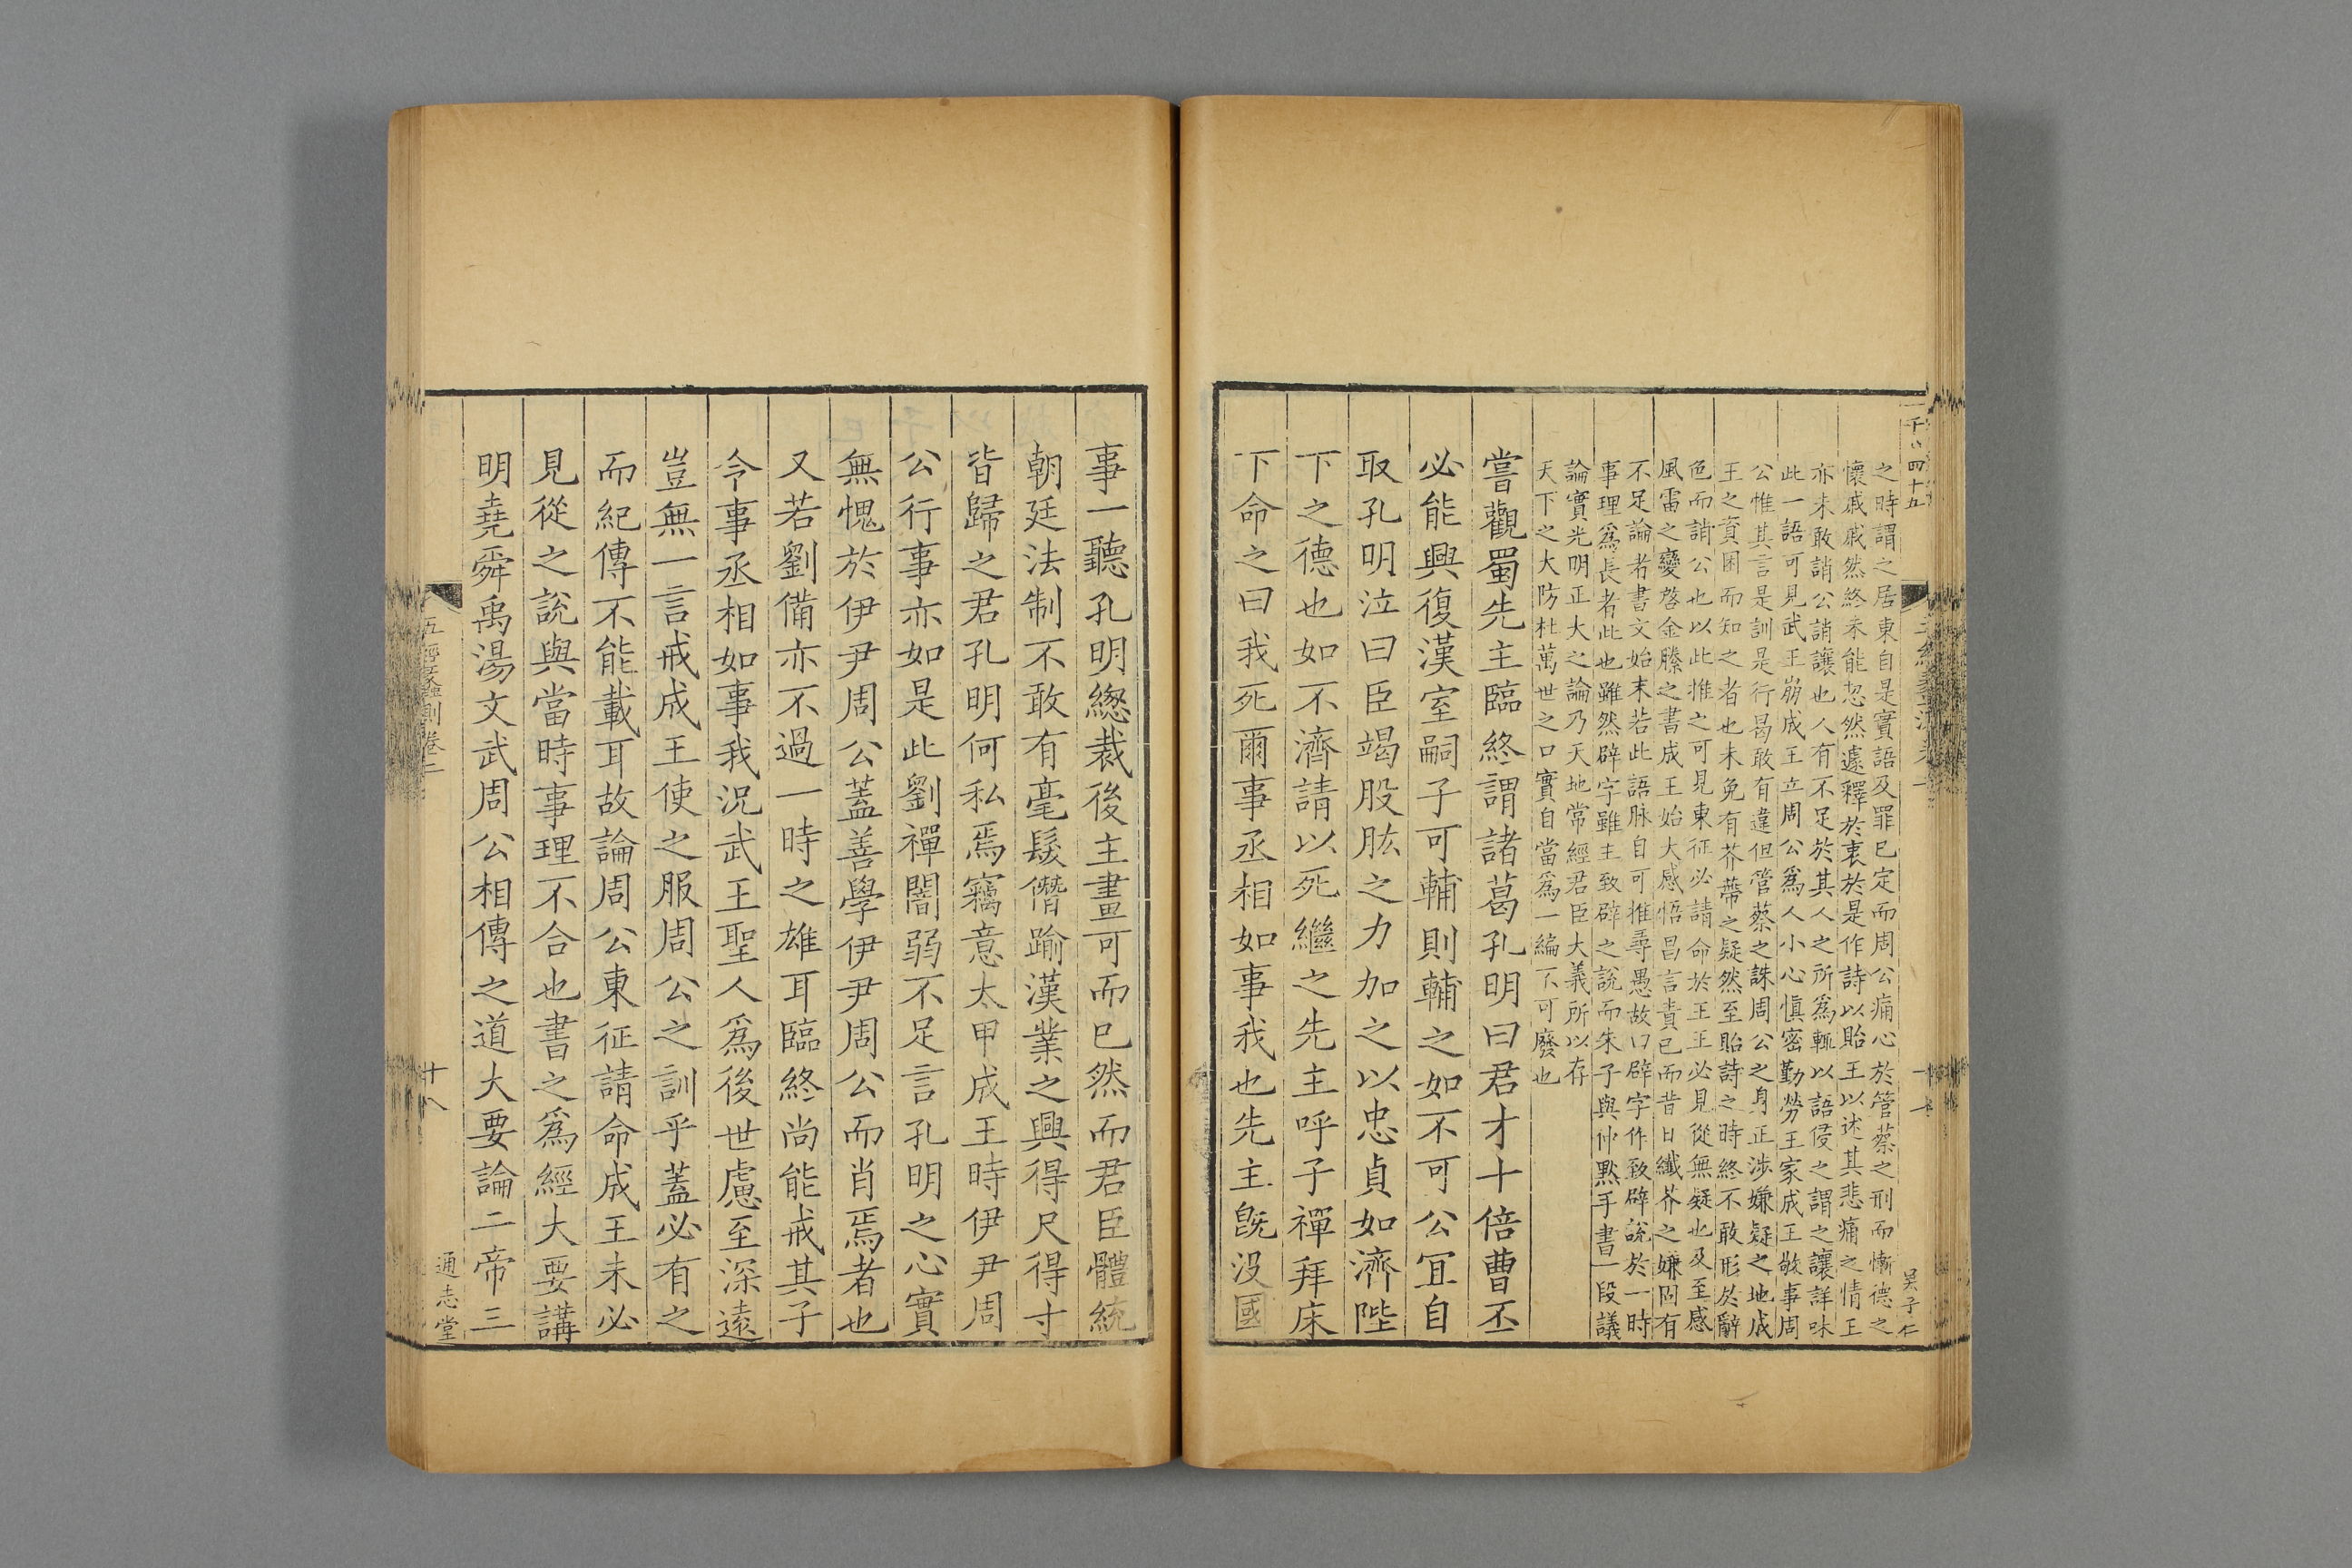 之時謂之居東自是實語及罪已定而周公痛心於管蔡之刑而慚德之
懷戚戚然終未能忽然遽釋於衷於是作詩以貽王以述其悲痛之情王
亦未敢誚公誚讓也人有不足於其人之所爲輒以語侵之謂之讓詳味
此一語可見武王崩成王立周公爲人小心愼密勤勞王家成王敬事周
公惟其言是訓是行曷敢有違但管蔡之誅周公之身正涉嫌疑之地成
王之資困而知之者也未免有芥蔕之疑然至貽詩之時終不敢形於辭
色而誚公也以此推之可見東征必請命於王王必見從無疑也及至感
風雷之變啓金縢之書成王始大感悟昌言責已而昔日纖芥之嫌罔有
不足論者書文始末若此語脉自可推尋愚故曰辟字作致辟說於一時
事理爲長者此也雖然辟字雖主致辟之說而朱子與仲黙手書一段議
論實光明正大之論乃天地常經君臣大義所以存
天下之大防杜萬世之口實自當爲一編不可廢也
嘗觀蜀先主臨終謂諸葛孔明曰君才十倍曹丕
必能興復漢室嗣子可輔則輔之如不可公宜自
取孔明泣曰臣竭股肱之力加之以忠貞如濟陛
下之德也如不濟請以死繼之先主呼子禪拜床
下命之曰我死爾事丞相如事我也先主旣没國
事一聽孔明緫裁後主畫可而已然而君臣體統
朝廷法制不敢有毫髮僭踰漢業之興得尺得寸
皆歸之君孔明何私焉竊意太甲成王時伊尹周
公行事亦如是此劉禪闇弱不足言孔明之心實
無愧於伊尹周公蓋善學伊尹周公而肖焉者也
又若劉備亦不過一時之雄耳臨終尚能戒其子
令事丞相如事我況武王聖人爲後世慮至深遠
豈無一言戒成王使之服周公之訓乎蓋必有之
而紀傳不能載耳故論周公東征請命成王未必
見從之說與當時事理不合也書之爲經大要講
明堯舜禹湯文武周公相傳之道大要論二帝三
五經蠡測卷二
十八
通志堂
四十五
吴子仁